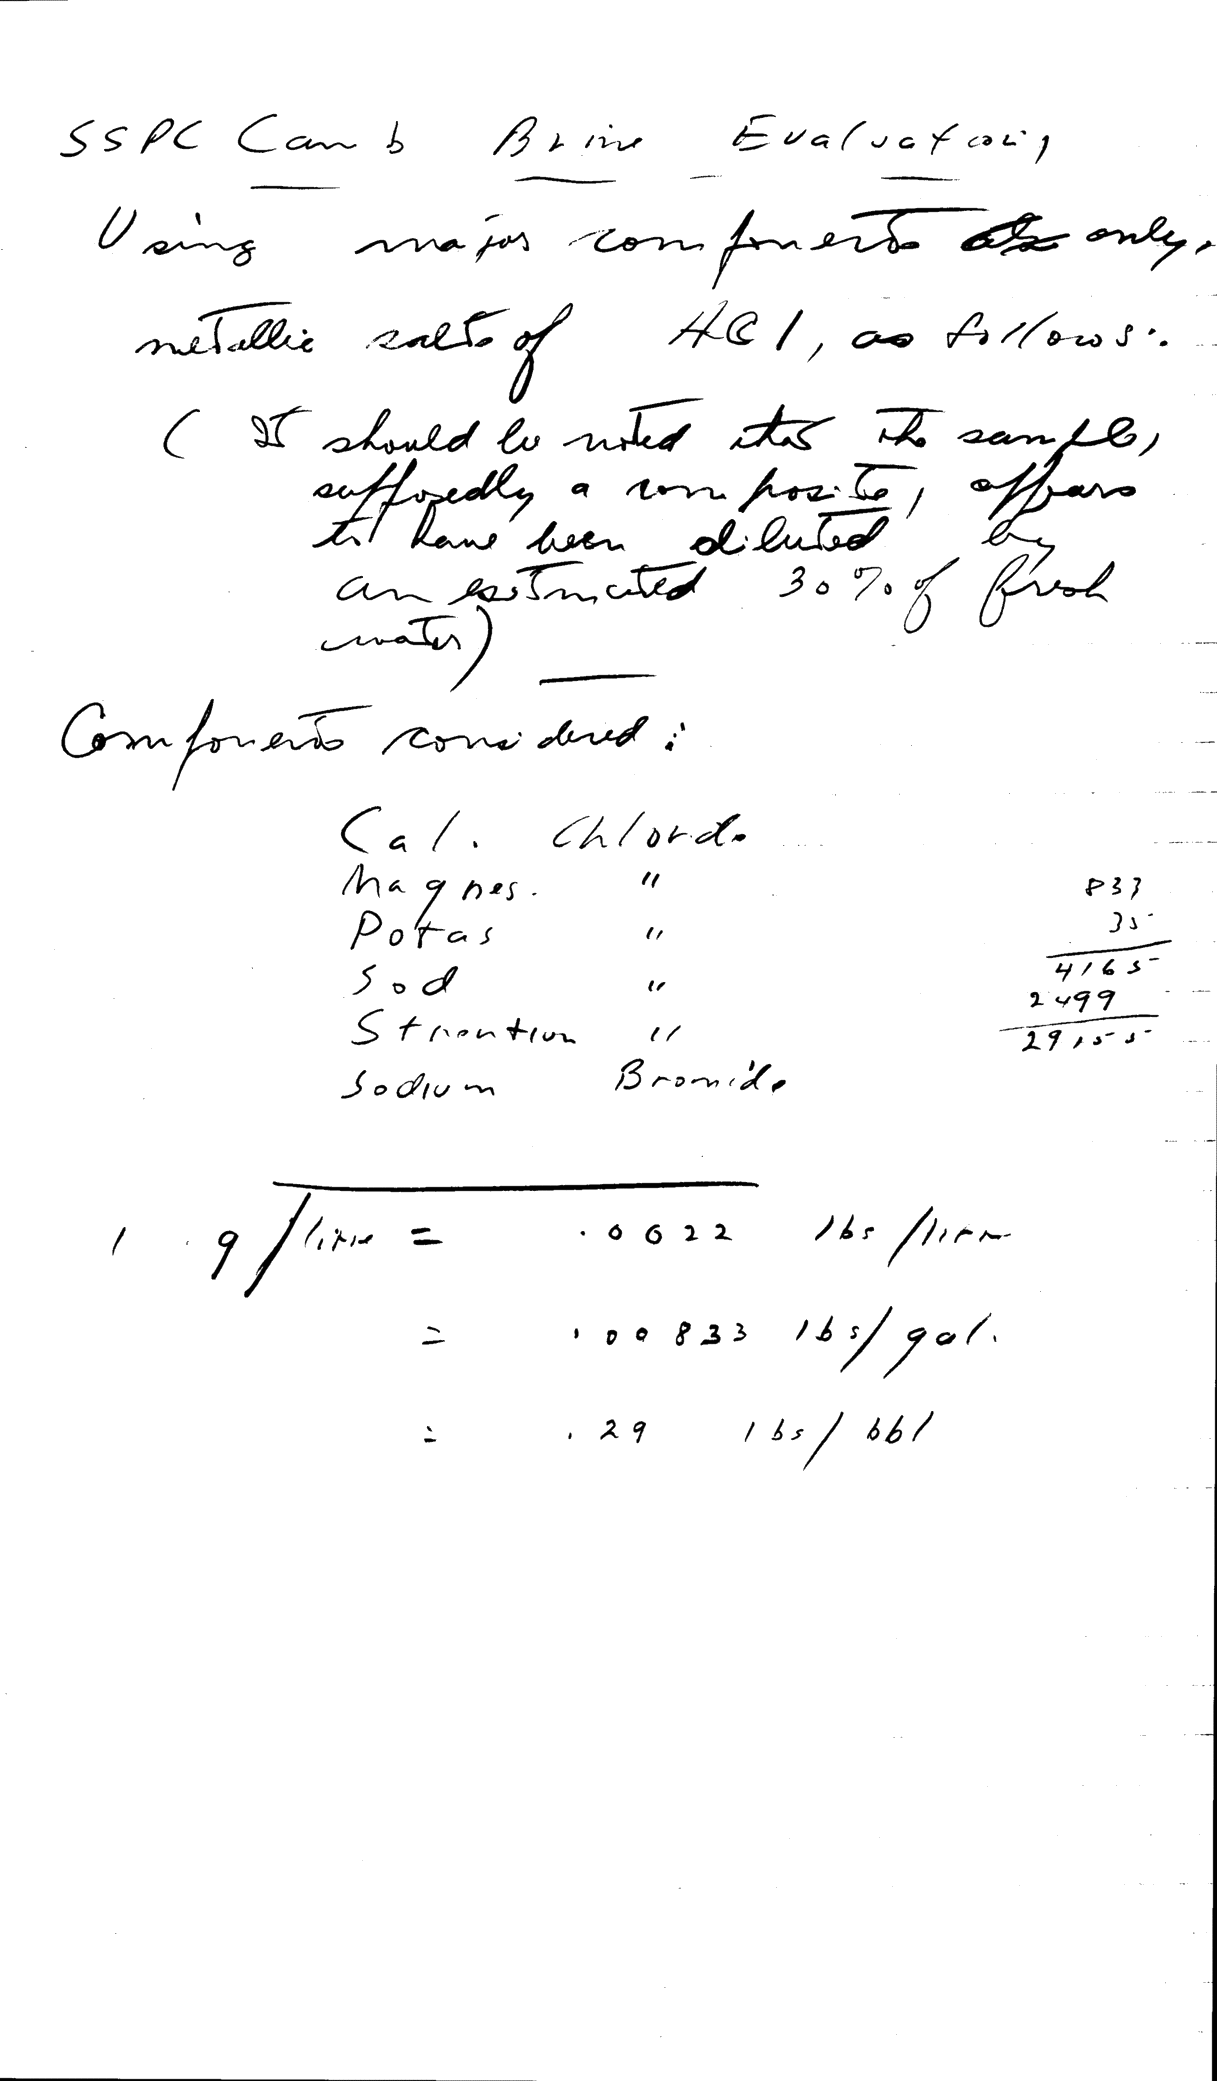 SSPC Camb Brine Evaluation,
Using major components only,
metallic salts of HCl, as follows:
( It should be noted that the sample,
supposedly a composite, appears
to have been diluted by
an estimated 30% of fresh
water)
Components considered:
Cal. Chloride
Magnes. "
Potas "
Sod "
Strontium "
Sodium Bromide
833
35
4165
2499
29155
1 g/litre = .0022 lbs/litre
= .00833 lbs/gal.
= .29 lbs/bbl